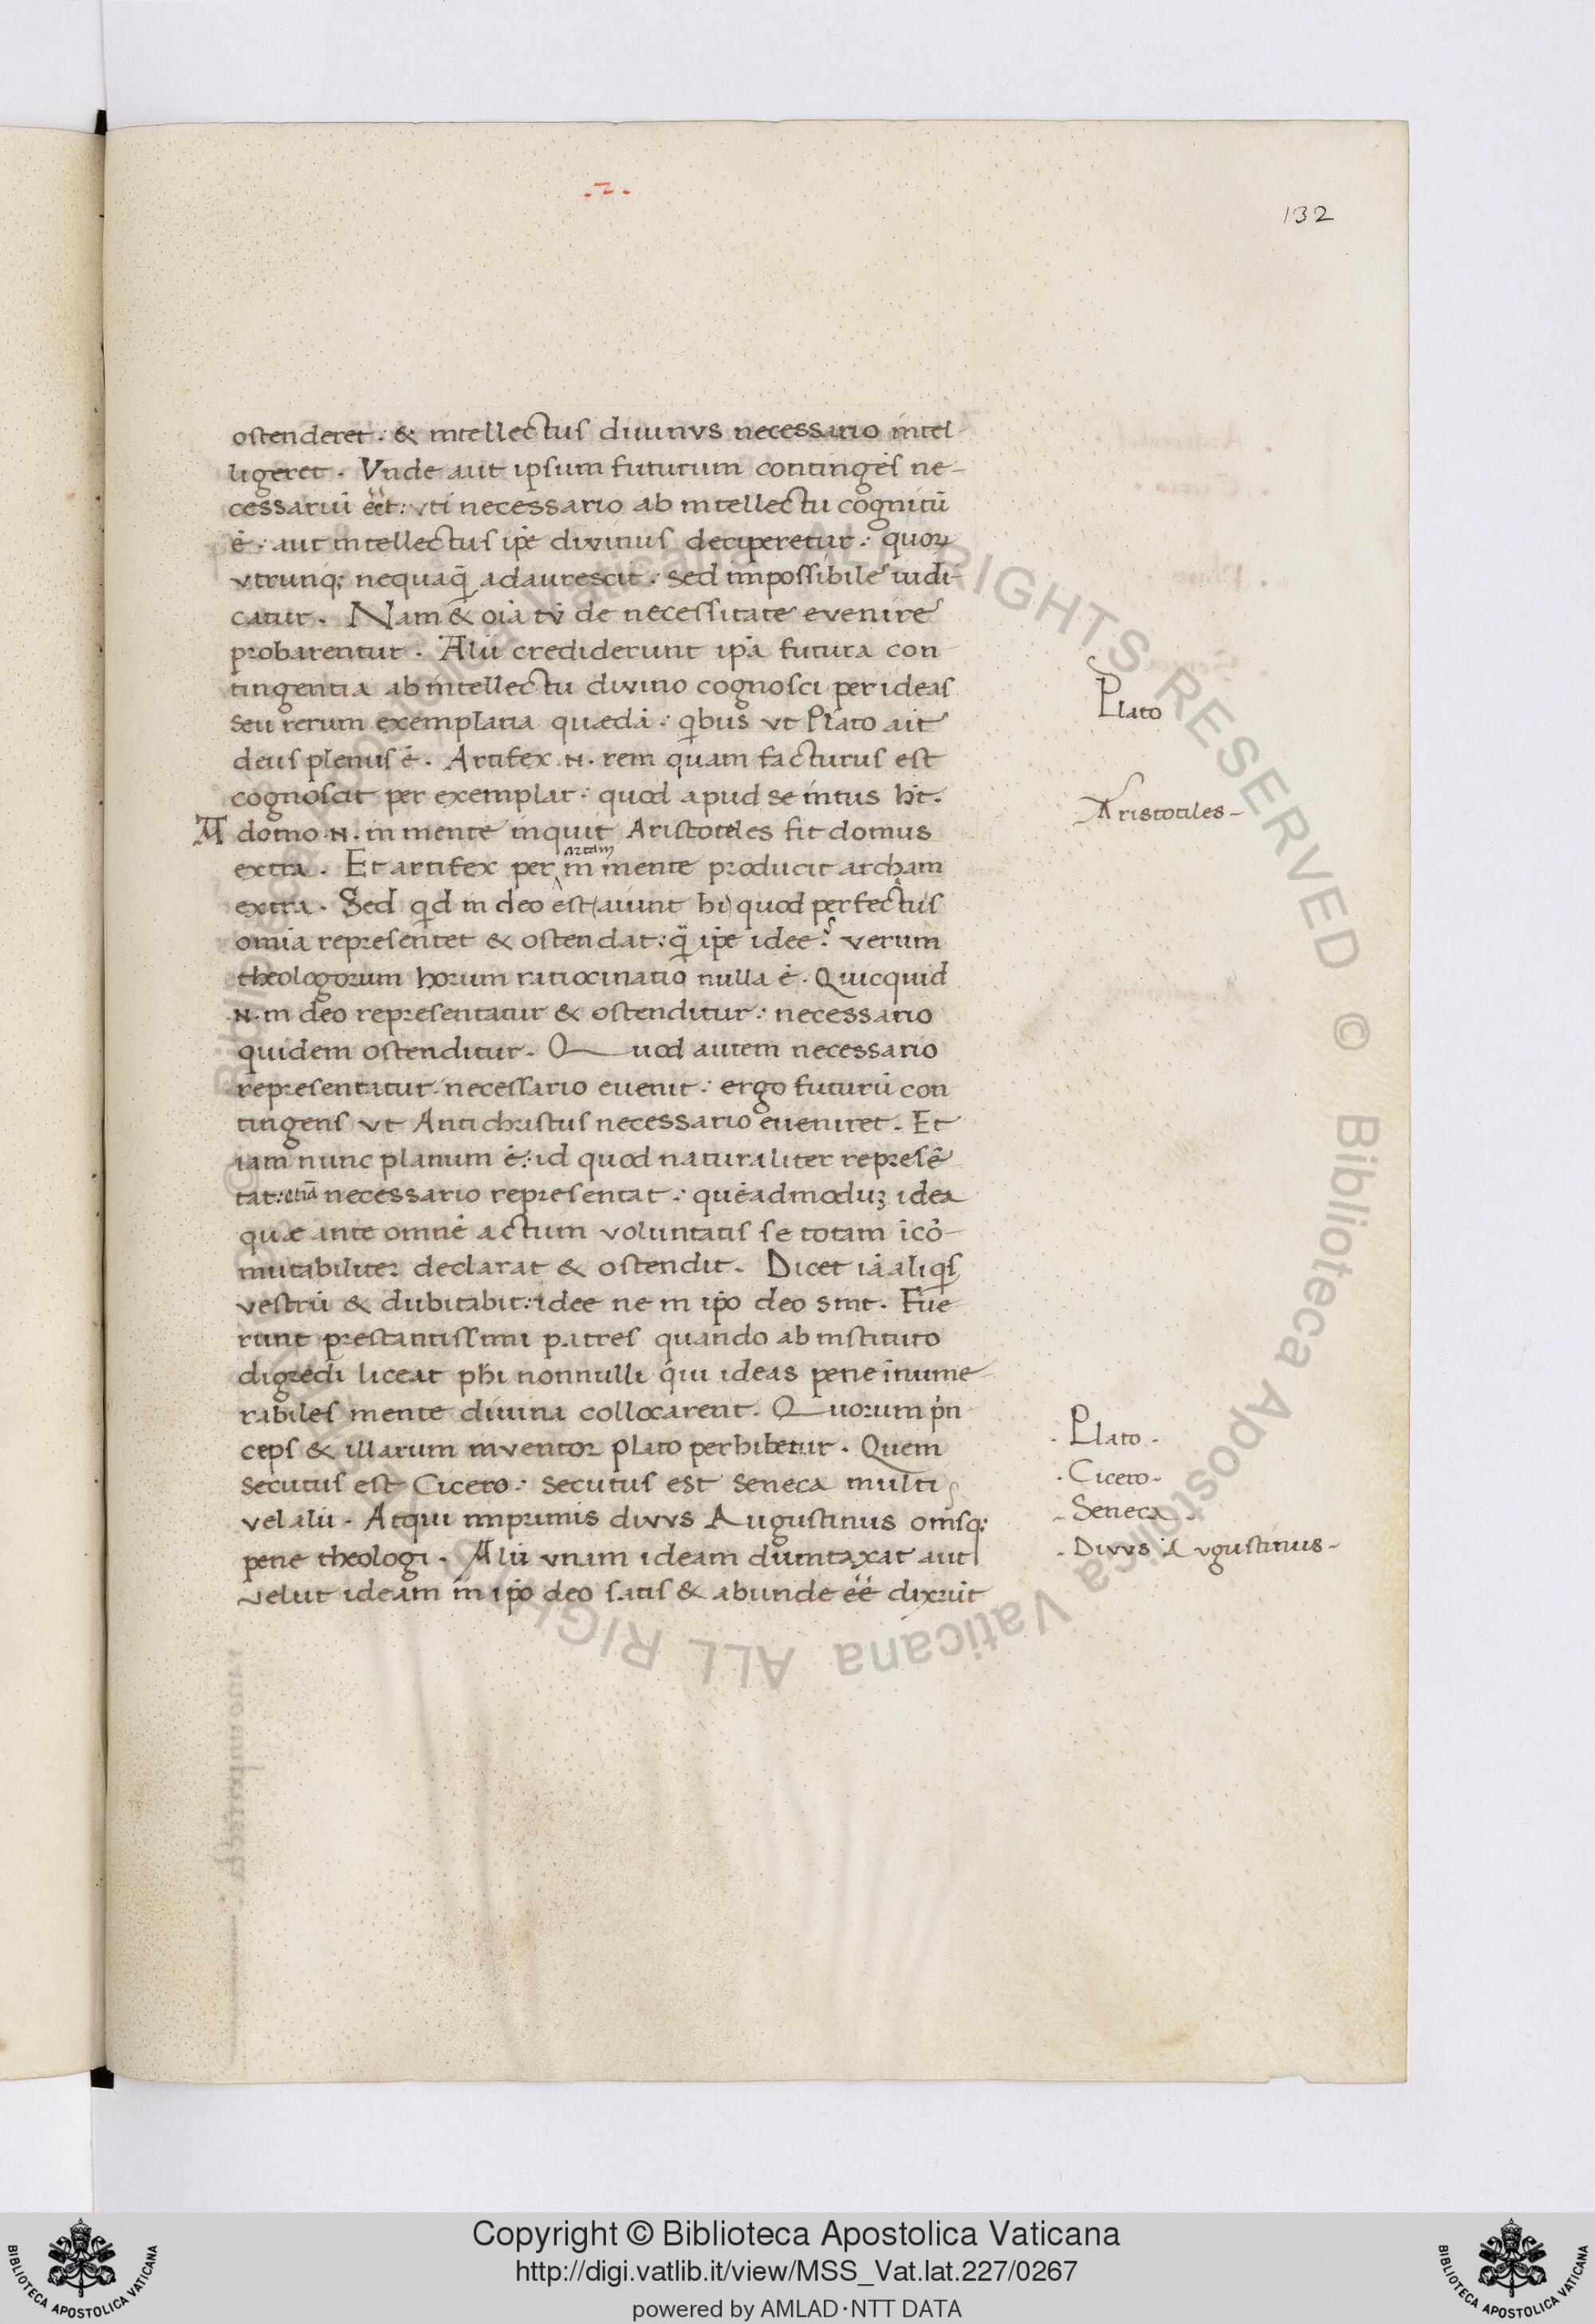 .2.
132
ostenderet: & intellectus diuinus necessario intel-
ligeret. Vnde aut ipsum futurum contingēs ne-
cessariū eēt: vti necessario ab intellectu cognitū
ē: aut intellectus ip̄e divinus deciperetur: quoꝝ
vtrunqꝫ nequaq̄ adaurescit: sed impossibile iudi-
catur. Nam & oīa tū de necessitate evenire
probarentur. Alii crediderunt ip̄a futura con-
tingentia ab intellectu divino cognosci per ideas
seu rerum exemplaria quædā: qibus vt Plato ait
deus plenus ē. Artifex .N. rem quam facturus est
cognoscit per exemplar: quod apud se intus ht̄.
A domo .N. in mente inquit Aristoteles fit domus
extra. Et artifex per artem in mente producit archam
extra. Sed qid in deo est (aiunt hi) quod perfectius
omīa representet & ostendat: q̄ ip̄e idee? verum
theologorum horum ratiocinatio nulla ē. Quicquid
.N. in deo representatur & ostenditur: necessario
quidem ostenditur. Quod autem necessario
representatur necessario euenit: ergo futurū con
tingens vt Antichristus necessario eueniret. Et
iam nunc planum ē: id quod naturaliter represē
tat: etiā necessario representat: quēadmoduꝫ idea
quæ ante omnē actum voluntatis se totam īcō-
mutabiliter declarat & ostendit. Dicet iā aliqis
vestrū & dubitabit: idee ne in ip̄o deo sint. Fue
runt prestantissimi patres quando ab instituto
digredi liceat phī nonnulli qui ideas pene īnume-
rabiles mente diuina collocarent. Quorum prin
ceps & illarum inventor plato perhibetur. Quem
secutus est Cicero: secutus est Seneca multi
vel alii. Atqui imprimis divus Augustinus om̄sqꝫ
pene theologi. Alii vnam ideam dumtaxat aut
velut ideam in ip̄o deo satis & abunde eē dixerūt
Plato
Aristotiles-
. Plato .
. Cicero-
. Seneca .
. Divus Augustinus-
© Biblioteca Apostolica Vaticana ALL RIGHTS RESERVED © Biblioteca Apostolica Vaticana ALL RIGHT
Copyright © Biblioteca Apostolica Vaticana
http://digi.vatlib.it/view/MSS_Vat.lat.227/0267
powered by AMLAD·NTT DATA
BIBLIOTECA APOSTOLICA VATICANA
BIBLIOTECA APOSTOLICA VATICANA